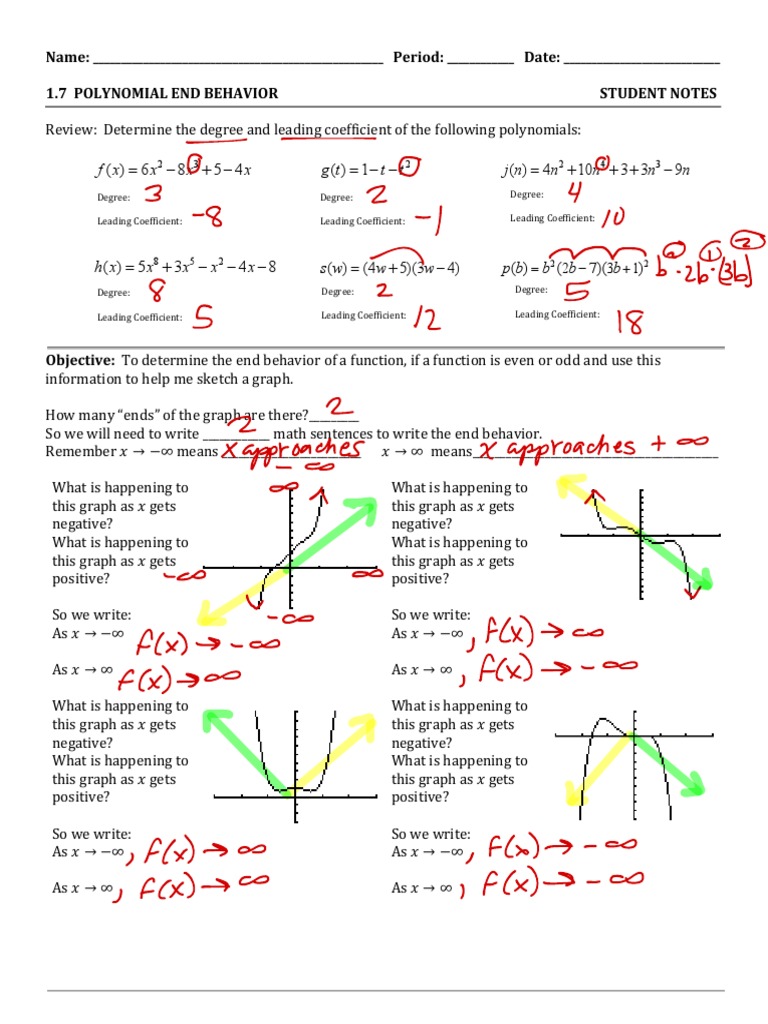 Name: ____________________ Period: __________ Date: ____________________
1.7 POLYNOMIAL END BEHAVIOR STUDENT NOTES
Review: Determine the degree and leading coefficient of the following polynomials:
f(x) = 6x² − 8x³ + 5 − 4x g(t) = 1 − t − t² j(n) = 4n² + 10n⁴ + 3 + 3n³ − 9n
Degree: 3 Degree: 2 Degree: 4
Leading Coefficient: −8 Leading Coefficient: −1 Leading Coefficient: 10
h(x) = 5x⁸ + 3x⁵ − x² − 4x − 8 s(w) = (4w + 5)(3w − 4) p(b) = b²(2b − 7)(3b + 1)² b² · 2b¹ · (3b)²
Degree: 8 Degree: 2 Degree: 5
Leading Coefficient: 5 Leading Coefficient: 12 Leading Coefficient: 18
Objective: To determine the end behavior of a function, if a function is even or odd and use this
information to help me sketch a graph.
How many “ends” of the graph are there? 2
So we will need to write 2 math sentences to write the end behavior.
Remember x → −∞ means x approaches − ∞ x → ∞ means x approaches + ∞
What is happening to
this graph as x gets
negative?
What is happening to
this graph as x gets
positive?
∞
−∞ ∞
−∞
So we write:
As x → −∞ f(x) → −∞
As x → ∞ f(x) → ∞
What is happening to
this graph as x gets
negative?
What is happening to
this graph as x gets
positive?
So we write:
As x → −∞ , f(x) → ∞
As x → ∞ , f(x) → −∞
What is happening to
this graph as x gets
negative?
What is happening to
this graph as x gets
positive?
So we write:
As x → −∞ , f(x) → ∞
As x → ∞ , f(x) → ∞
What is happening to
this graph as x gets
negative?
What is happening to
this graph as x gets
positive?
So we write:
As x → −∞ , f(x) → − ∞
As x → ∞ , f(x) → − ∞